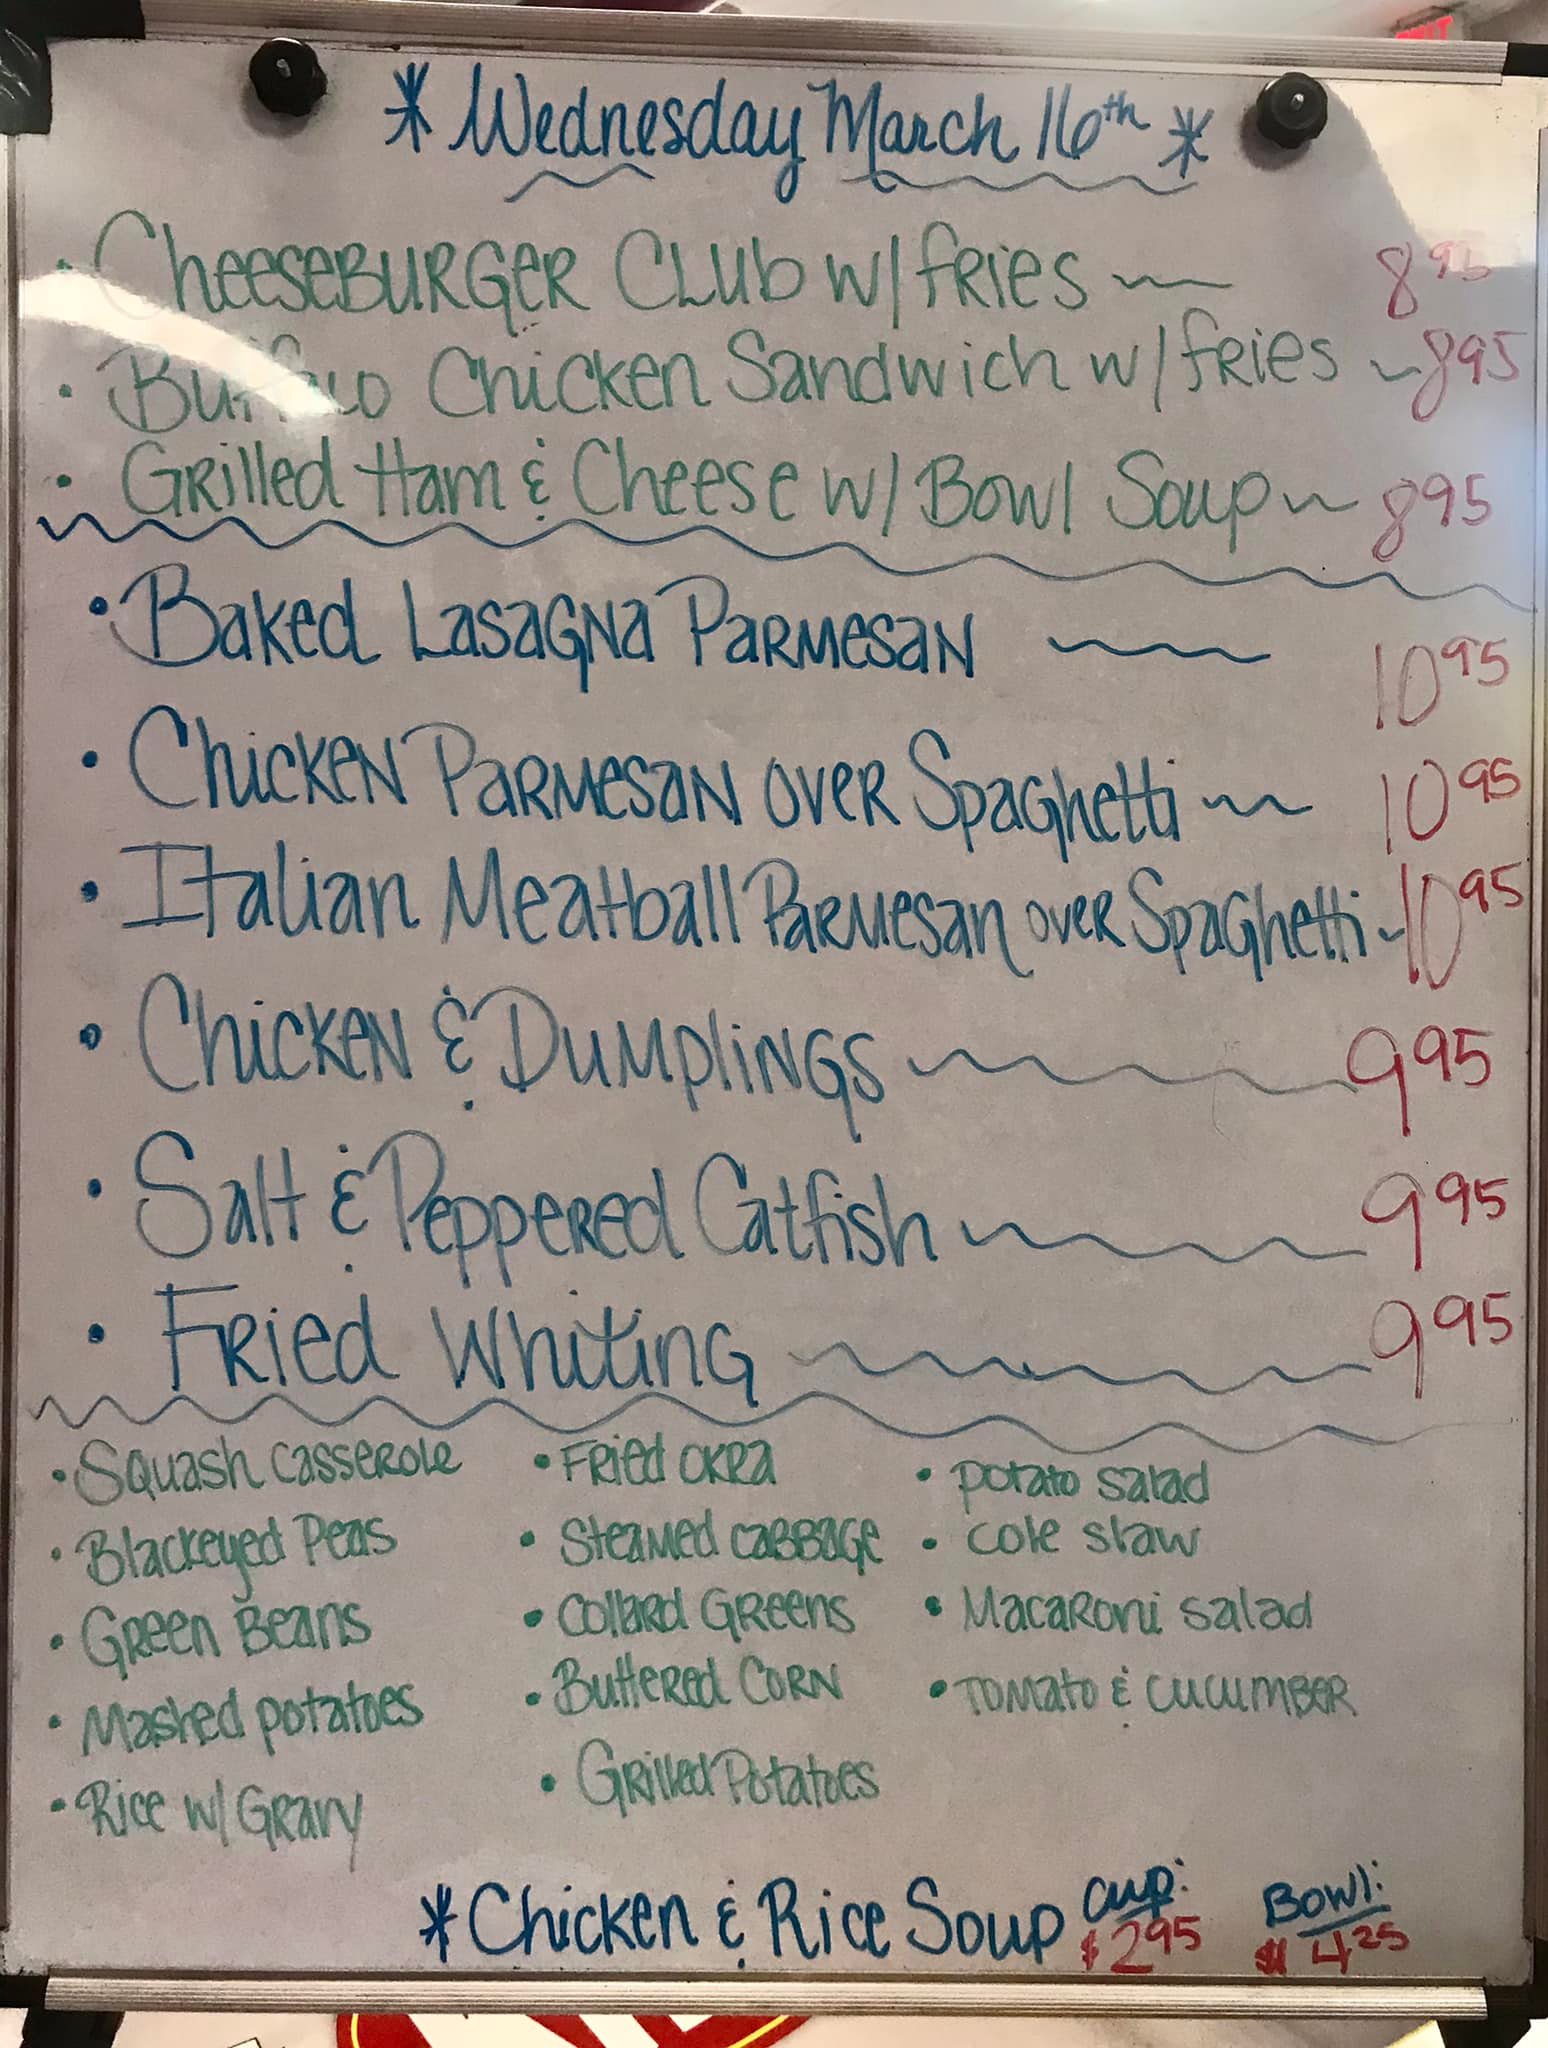 * Wednesday March 16th *
• Cheeseburger Club w/ fries 8 95
• Buffalo Chicken Sandwich w/ fries 8 95
• Grilled Ham & Cheese w/ Bowl Soup 8 95
• Baked Lasagna Parmesan 10 95
• Chicken Parmesan over Spaghetti 10 95
• Italian Meatball Parmesan over Spaghetti 10 95
• Chicken & Dumplings 9 95
• Salt & Peppered Catfish 9 95
• Fried Whiting 9 95
• Squash Casserole
• Blackeyed Peas
• Green Beans
• Mashed potatoes
• Rice w/ Gravy
• Fried Okra
• Steamed Cabbage
• Collard Greens
• Buttered Corn
• Grilled Potatoes
• potato salad
• cole slaw
• Macaroni salad
• Tomato & cucumber
* Chicken & Rice Soup Cup: $2 95 Bowl: $4 25